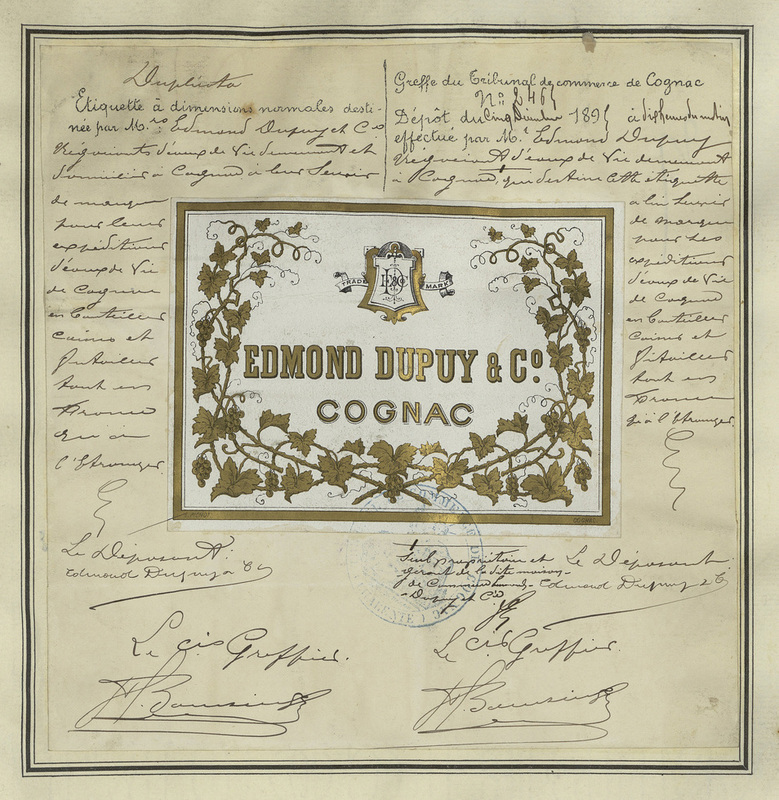 Duplicata
Etiquette à dimensions normales desti-
née par M.rs Edmond Dupuy et Cie
Négociants d'eaux de Vie demeurant et
domiciliés à Cognac à leur Servir
de marque
pour leurs
expéditions
d'eaux de Vie
de Cognac
en bouteilles
caisses et
futailles
tant en
France
qu'à
l'Etranger
Le Déposant
Edmond Dupuy & Co
Le cis Greffier.
Greffe du Tribunal de commerce de Cognac
Dépôt du cinq 189
effectué par M.r Edmond Dupuy
Négociant d'eaux de Vie demeurant
à Cognac, qui destine cette étiquette
à lui servir
de marque
pour ses
expéditions
d'eaux de Vie
de Cognac
en bouteilles
Caisses et
futailles
tant en
France
qu'à l'Etranger.
TRADE MARK
EDMOND DUPUY & Co.
COGNAC
Seul propriétaire et
gérant de la dite maison
de Commerce Edmond
Dupuy et Cie
Le Déposant
Edmond Dupuy & Co
Le cis Greffier.